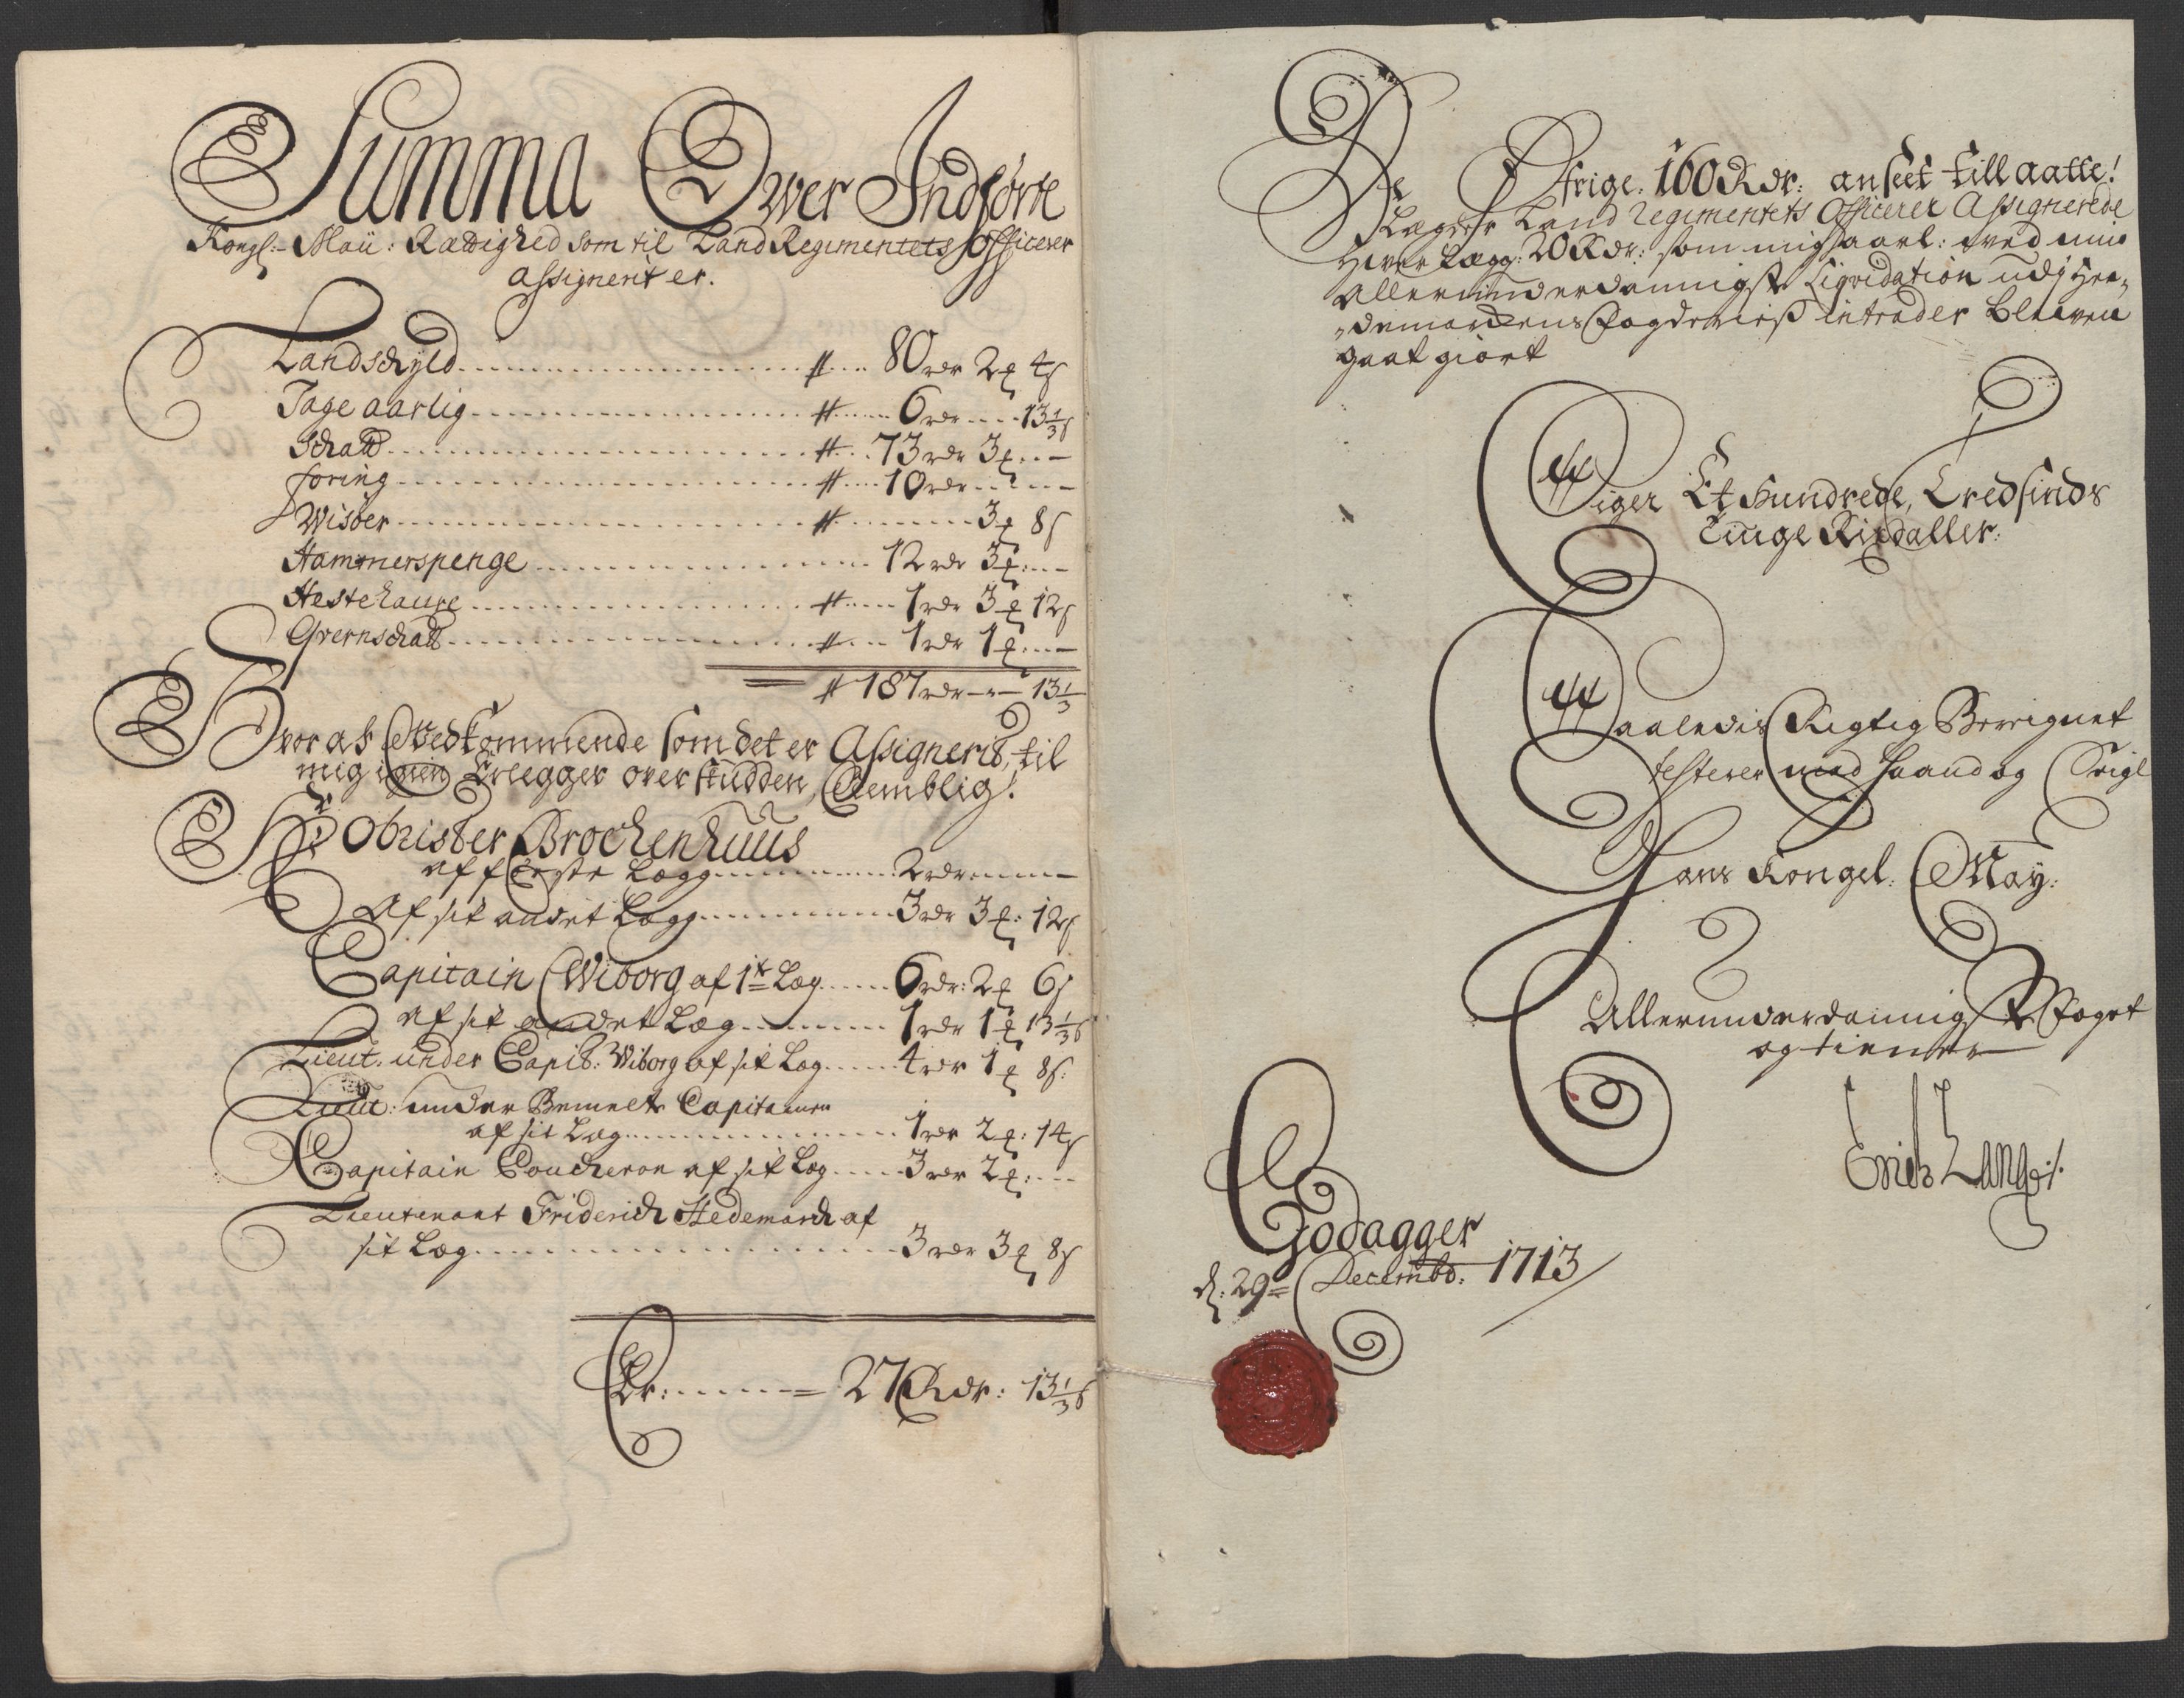 Summa Ower Indførte
Kongl: Maÿ: Rættighed som til Land Regimentets Officerer
assignerit er.
Landschyld ... # ... 80 rdr 2 ꝑ 4 s
Tage aarlig ... # ... 6 rdr ... 13⅓ s
Schatt ... # ... 73 rdr 3 ꝑ ...
foring ... # ... 10 rdr ...
Wisøer ... # ... 3 ꝑ 8 s
Hammerspenge ... 12 rdr 3 ꝑ ...
Hestehaufre ... # ... 1 rdr 3 ꝑ 12 s
Qvernschatt ... # ... 1 rdr 1 ꝑ ...
# 187 rdr — 13⅓
Hvor af Vedkommende som det er Assignerit, til
mig igien Erlegger overskudden, Nemblig!
Hr Obrister Brochenhuus
af første Lægg ... 2 rdr ...
Af sit andet Lægg ... 3 rdr 3 ꝑ: 12 s
Capitain Wiborg af 1te Læg ... 6 rdr: 2 ꝑ 6 s
af sit andet Læg ... 1 rdr 1 ꝑ 13⅓ s
Lieut. under Capit: Wiborg af sit Læg ... 4 rdr 1 ꝑ 8 s:
Lieut: under Bemelte Capitain
af sit Læg ... 1 rdr 2 ꝑ: 14 s
Capitain Coucheron af sit Læg ... 3 rdr 2 ꝑ: ...
Lieutenant Friderich Hedemarch af
sit Læg ... 3 rdr 3 ꝑ 8 s
Er: ... = 27 Rdr: 13⅓ s
De Øfrige. 160 Rdr: anseet till aatte!
Lægder Land Regimentets Officerer Assignerede
Hver Lægg: 20 Rdr: som mig aarl: ved min
Allerunderdannigste Liqvidation udj Hee-
demarckens Fogderies intrader bleven
gaat giort
Siger Et Hundrede, Tredsinds
Tiuge Rixdaller:
Saaledis Rigtig Beregnet
testerer med Haand og Seigl
Hans Kongel: May:
Allerunderdannigste Foget
og tienner
Erich Lange
Godagger
d: 29 = Decembr: 1713